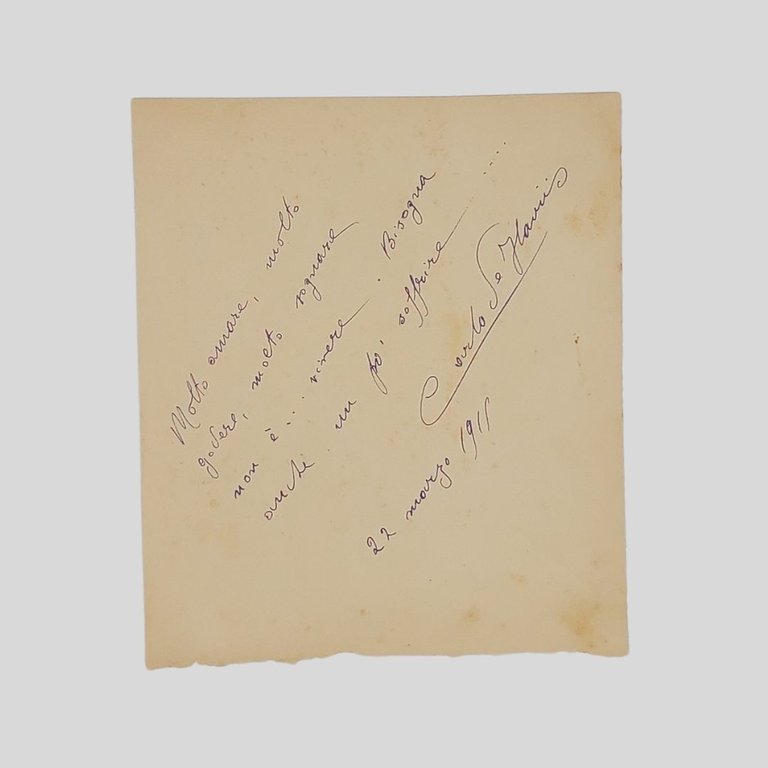 Molto amare, molto
godere, molto sognare
non è... vivere. Bisogna
anche un po' soffrire ....
Carlo de Flaviis
22 marzo 1911